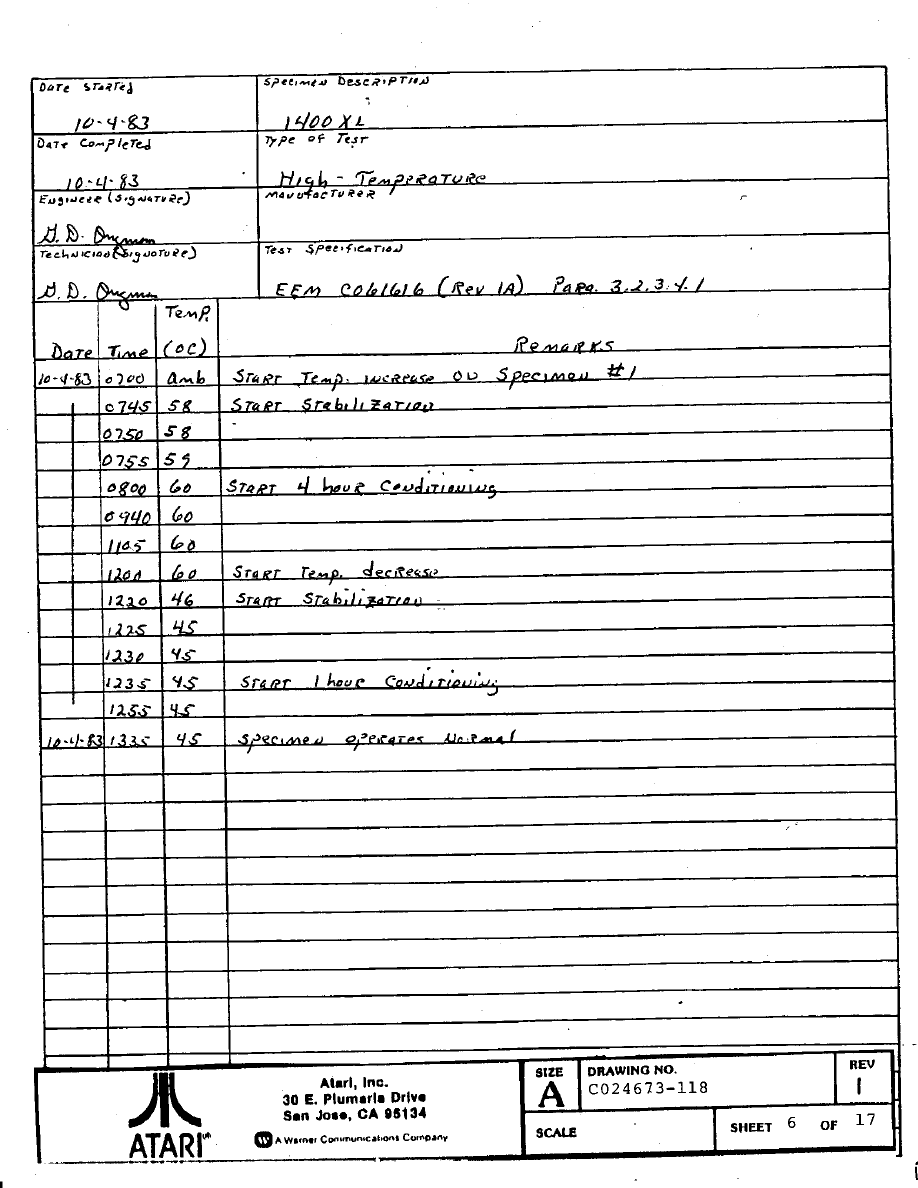 Date Started
Specimen Description
10-4-83
1400 XL
Date Completed
Type of Test
10-4-83
High-Temperature
Engineer (Signature)
Manufacturer
G. D.
Technician (Signature)
Test Specification
G. D.
EEM C061616 (Rev 1A) Para. 3.2.3.4.1
Temp.
Date Time (OC) Remarks
10-4-83 0700 amb Start Temp. increase on Specimen #1
0745 58 Start Stabilization
0750 58
0755 59
0800 60 Start 4 hour Conditioning
0940 60
1105 60
1200 60 Start Temp. decrease
1220 46 Start Stabilization
1225 45
1230 45
1235 45 Start 1 hour Conditioning
1255 45
10-4-83 1335 45 Specimen operates Normal
ATARI
Atari, Inc.
30 E. Plumeria Drive
San Jose, CA 95134
A Warner Communications Company
SIZE
A
DRAWING NO.
C024673-118
REV
1
SCALE
SHEET 6 OF 17